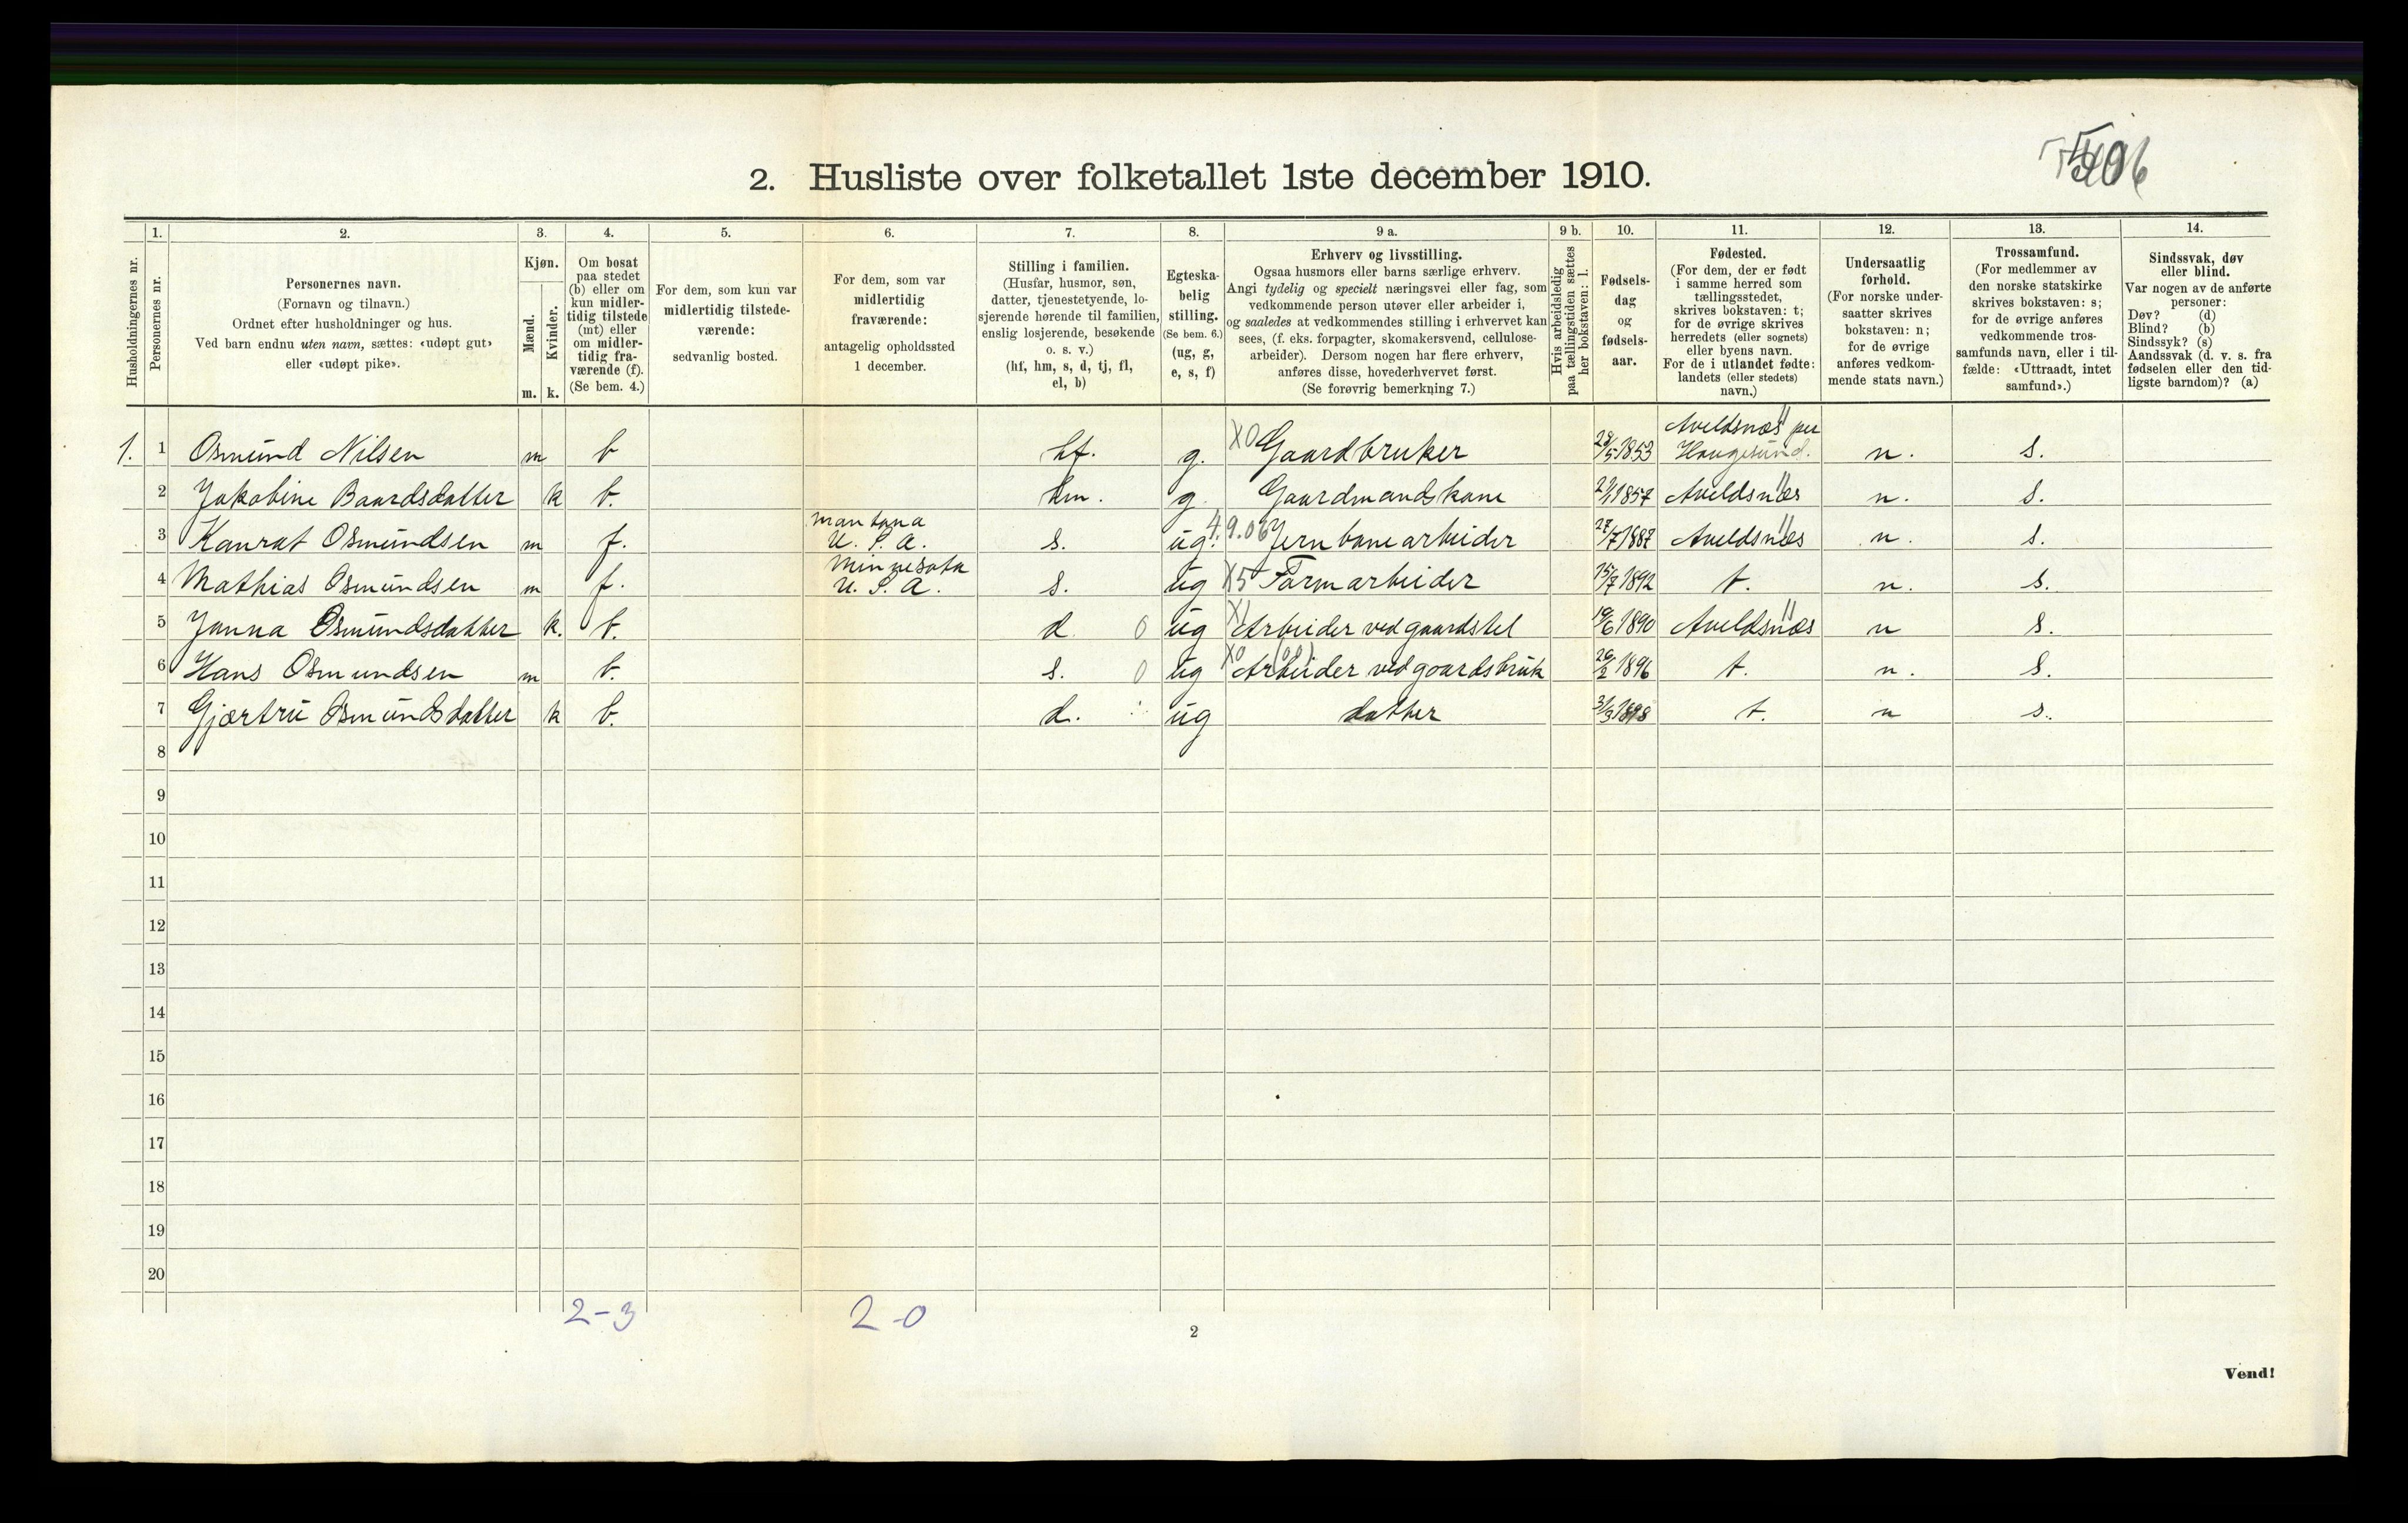 2. Husliste over folketallet 1ste december 1910.
Husholdningernes nr.
1.
Personernes nr.
2.
Personernes navn.
(Fornavn og tilnavn.)
Ordnet efter husholdninger og hus.
Ved barn endnu uten navn, sættes: «udøpt gut»
eller «udøpt pike».
3.
Kjøn.
Mænd.
Kvinder.
m. k.
4.
Om bosat
paa stedet
(b) eller om
kun midler-
tidig tilstede
(mt) eller
om midler-
tidig fra-
værende (f).
(Se bem. 4.)
5.
For dem, som kun var
midlertidig tilstede-
værende:
sedvanlig bosted.
6.
For dem, som var
midlertidig
fraværende:
antagelig opholdssted
1 december.
7.
Stilling i familien.
(Husfar, husmor, søn,
datter, tjenestetyende, lo-
sjerende hørende til familien,
enslig losjerende, besøkende
o. s. v.)
(hf, hm, s, d, tj, fl,
el, b)
8.
Egteska-
belig
stilling.
(Se bem. 6.)
(ug, g,
e, s, f)
9 a.
Erhverv og livsstilling.
Ogsaa husmors eller barns særlige erhverv.
Angi tydelig og specielt næringsvei eller fag, som
vedkommende person utøver eller arbeider i,
og saaledes at vedkommendes stilling i erhvervet kan
sees, (f. eks. forpagter, skomakersvend, cellulose-
arbeider). Dersom nogen har flere erhverv,
anføres disse, hovederhvervet først.
(Se forøvrig bemerkning 7.)
9 b.
Hvis arbeidsledig
paa tællingstiden sættes
her bokstaven: l.
10.
Fødsels-
dag
og
fødsels-
aar.
11.
Fødested.
(For dem, der er født
i samme herred som
tællingsstedet,
skrives bokstaven: t;
for de øvrige skrives
herredets (eller sognets)
eller byens navn.
For de i utlandet fødte:
landets (eller stedets)
navn.)
12.
Undersaatlig
forhold.
(For norske under-
saatter skrives
bokstaven: n;
for de øvrige
anføres vedkom-
mende stats navn.)
13.
Trossamfund.
(For medlemmer av
den norske statskirke
skrives bokstaven: s;
for de øvrige anføres
vedkommende tros-
samfunds navn, eller i til-
fælde: «Uttraadt, intet
samfund».)
14.
Sindssvak, døv
eller blind.
Var nogen av de anførte
personer:
Døv? (d)
Blind? (b)
Sindssyk? (s)
Aandssvak (d. v. s. fra
fødselen eller den tid-
ligste barndom)? (a)
1. 1 Osmund Nilsen m b hf. g. X0 Gaardbruker 28/5 1853 Aveldsnæs per Haugesund. n. s.
2 Jakobine Baardsdatter k b. hm. g Gaardmandskone 1857 Aveldsnæs n. s.
3 Konrat Osmundsen m f. Montana U. S. A. s. ug. 4.9.06 Jernbanearbeider 27/7 1887 Aveldsnæs n. s.
4 Mathias Osmundsen m f. Minnesota U. S. A. s. ug X5 Farmarbeider 15/7 1892 t. n. s.
5 Janna Osmundsdatter k. b. d 0 ug Arbeider ved gaardstel 19/6 1890 Aveldsnæs n s.
6 Hans Osmundsen m b. s. 0 ug X0 Arbeider ved gaardsbruk 26/2 1896 t. n. s.
7 Gjærtru Osmundsdatter k b. d. ug datter 3/3 1898 t. n s.
8
9
10
11
12
13
14
15
16
17
18
19
20
2-3 2-0
2
Vend!